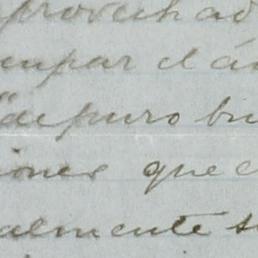 aprovechad
mpar el á
"de puro bu
iones que e
almente s